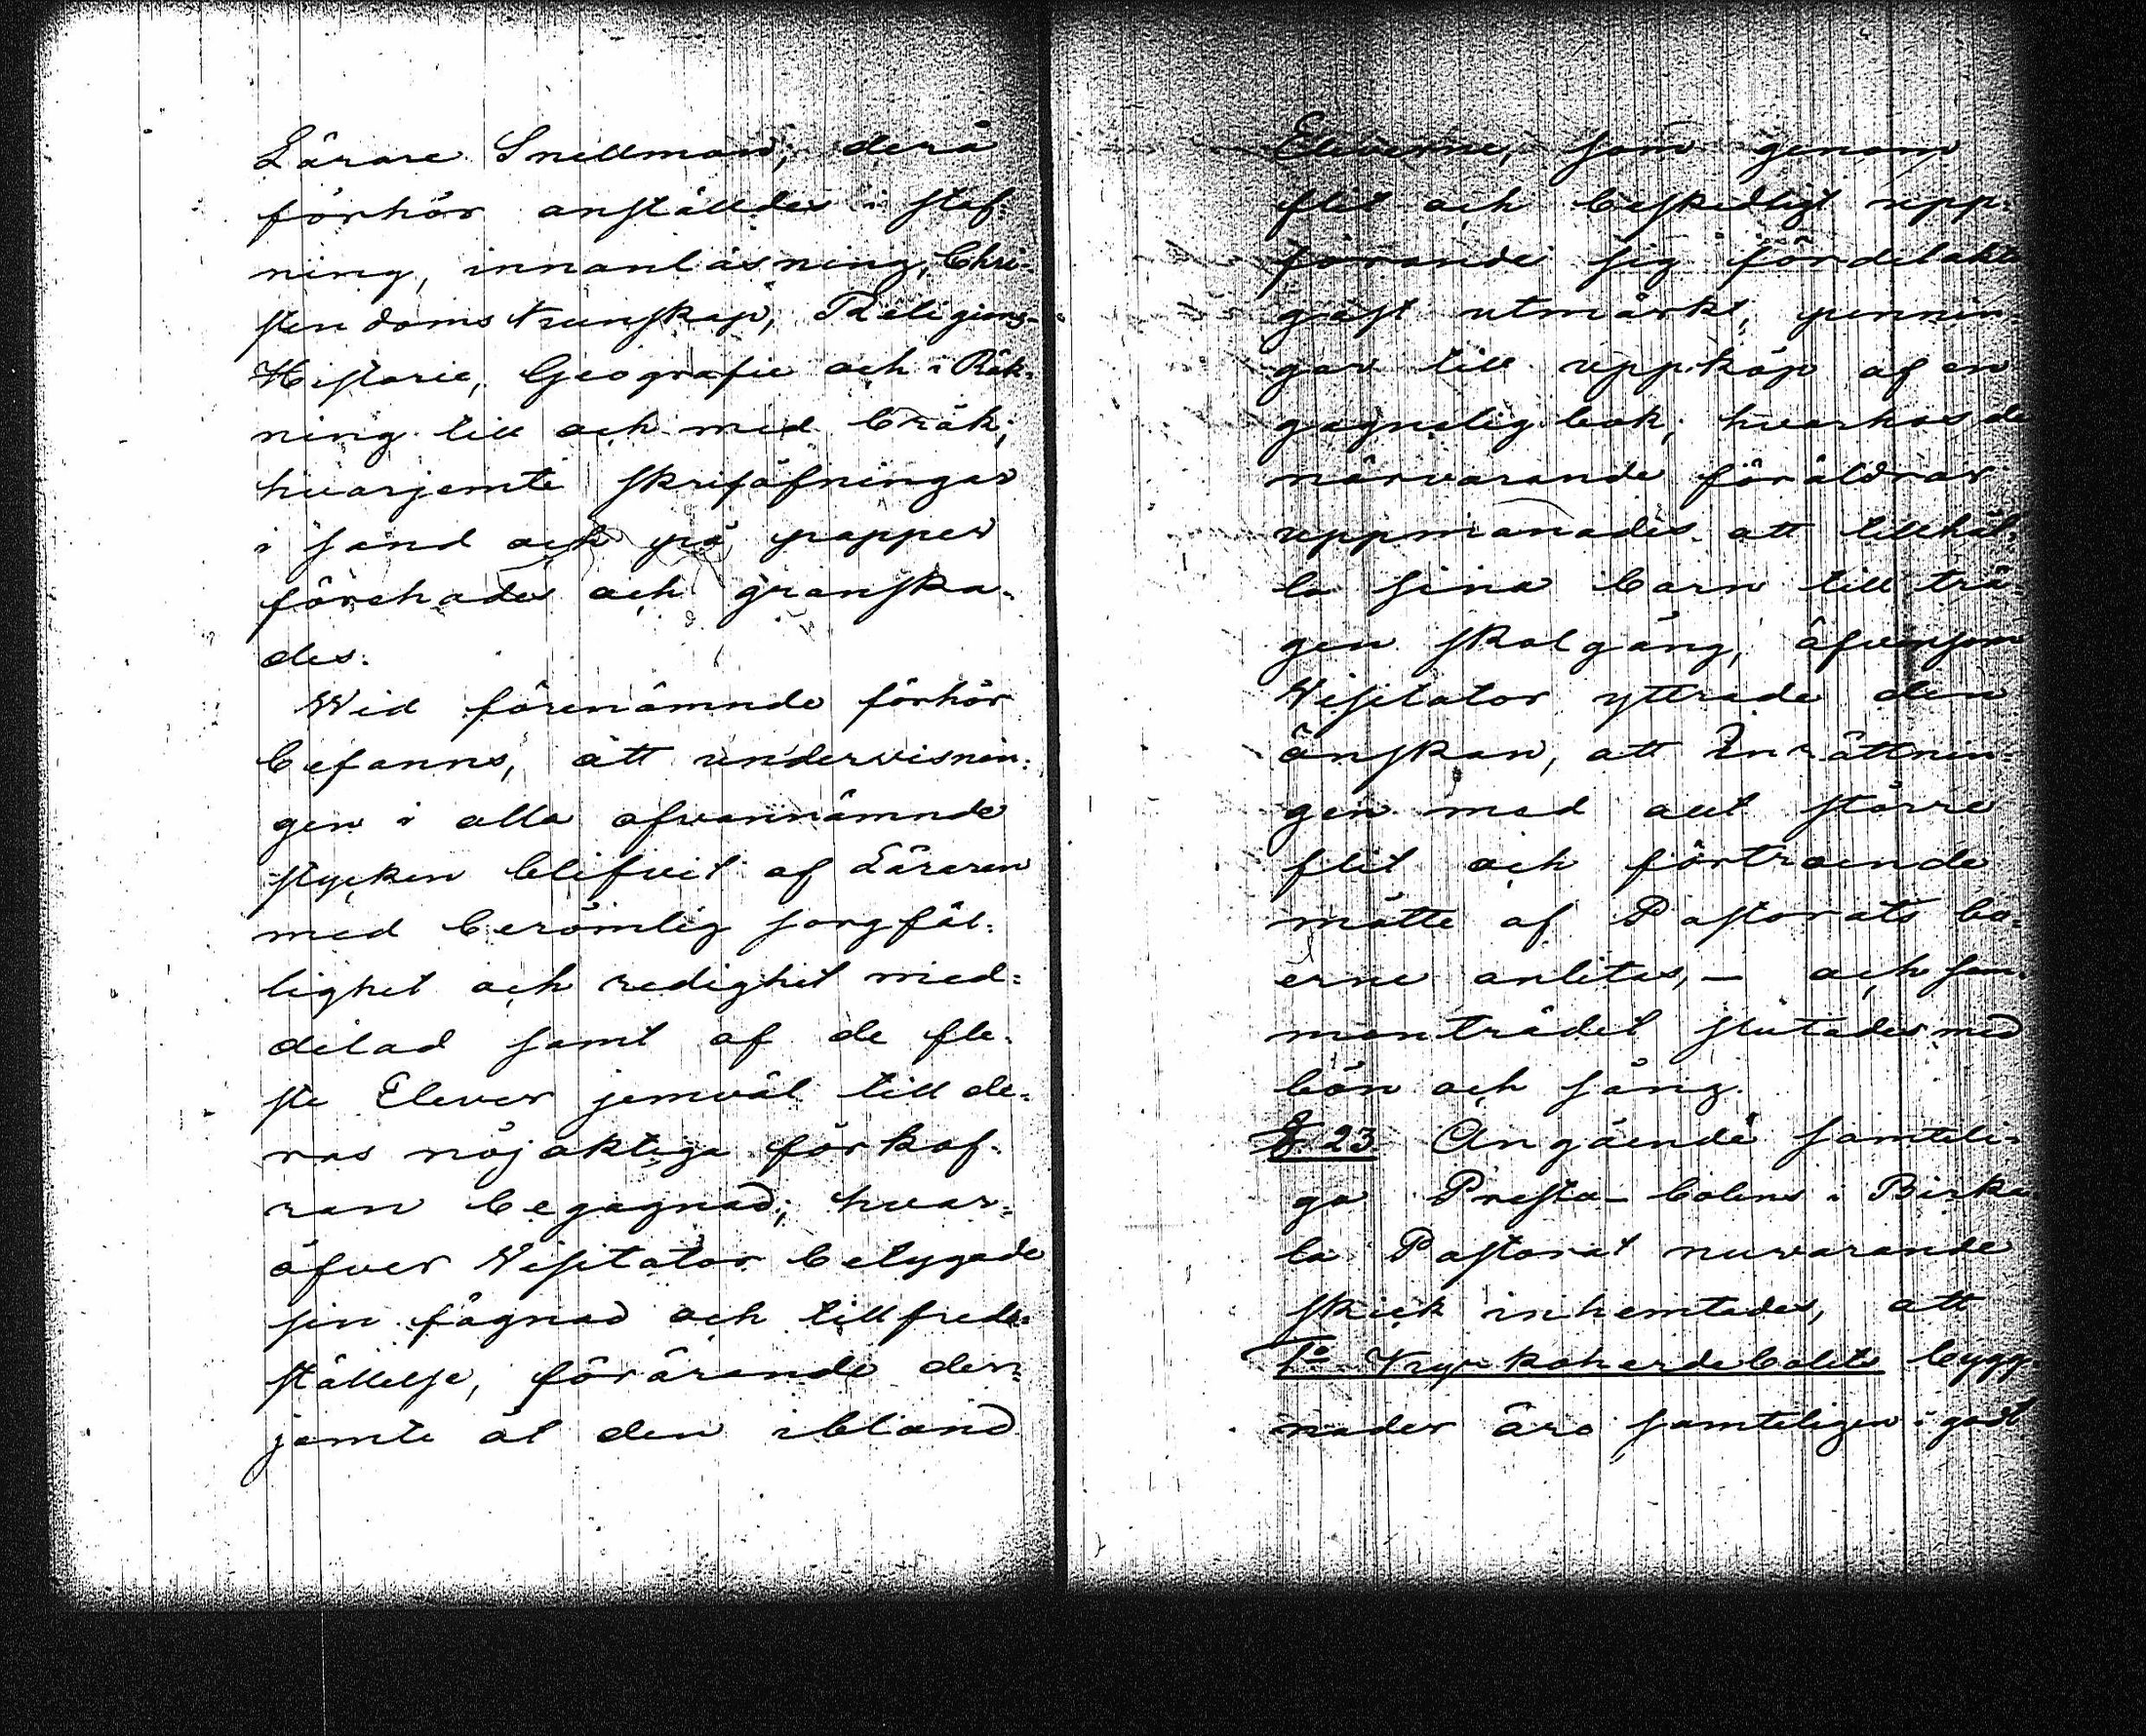 Lärare Snellman; derå
förhör anställdes i staf-
ning, innanläsning, Chri-
stendomskunskap, Religions-
Historie, Geografie och i Räk-
ning till och med bråk;
hvarjemte skriföfningar
i sand och på papper
förehades och granska-
des.
Wid förenämnde förhör
befanns, att undervisnin-
gen i alla ofvannämnde
stycken blifvit af Läraren
med berömlig sorgfäl-
lighet och redighet med-
delad samt af de fle-
ste Elever jemväl till de-
ras nöjaktiga förkof-
ran begagnad; hvar-
öfver Visitator betygade
sin fägnad och tillfreds-
ställelse, förärande der-
jemte åt den ibland
Eleverne, som genom
flit och beskedligt upp-
förande sig fördelakti
gast utmärkt, pennin-
gar till uppköp af en
gagnelig bok; hvarhos de
närvarande föräldrar
uppmanades att tillhål-
la sina barn till trä-
gen skolgång, äfvensom
Visitator yttrade den
önskan, att Inrättnin-
gen med allt större
flit och förtroende
måtte af Pastorats bo-
erne anlitas, — och sam-
manträdet slutades med
bön och sång.
§. 23. Angående samteli-
ga Prestabolens i Birka
la Pastorat nuvarande
skick inhemtades, att
1o Kyrkoherdebolets bygg-
nader äro samteligen i godt